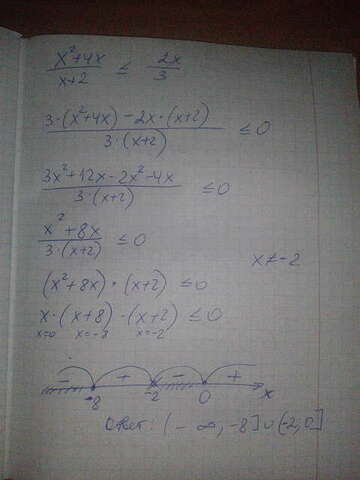 (x²+4x)/(x+2) ≤ 2x/3
(3·(x²+4x) - 2x·(x+2))/(3·(x+2)) ≤ 0
(3x²+12x-2x²-4x)/(3·(x+2)) ≤ 0
(x²+8x)/(3·(x+2)) ≤ 0
x≠-2
(x²+8x)·(x+2) ≤ 0
x·(x+8)·(x+2) ≤ 0
x=0 x=-8 x=-2
- + - +
-8 -2 0 x
Ответ: (-∞, -8]∪(-2,0]